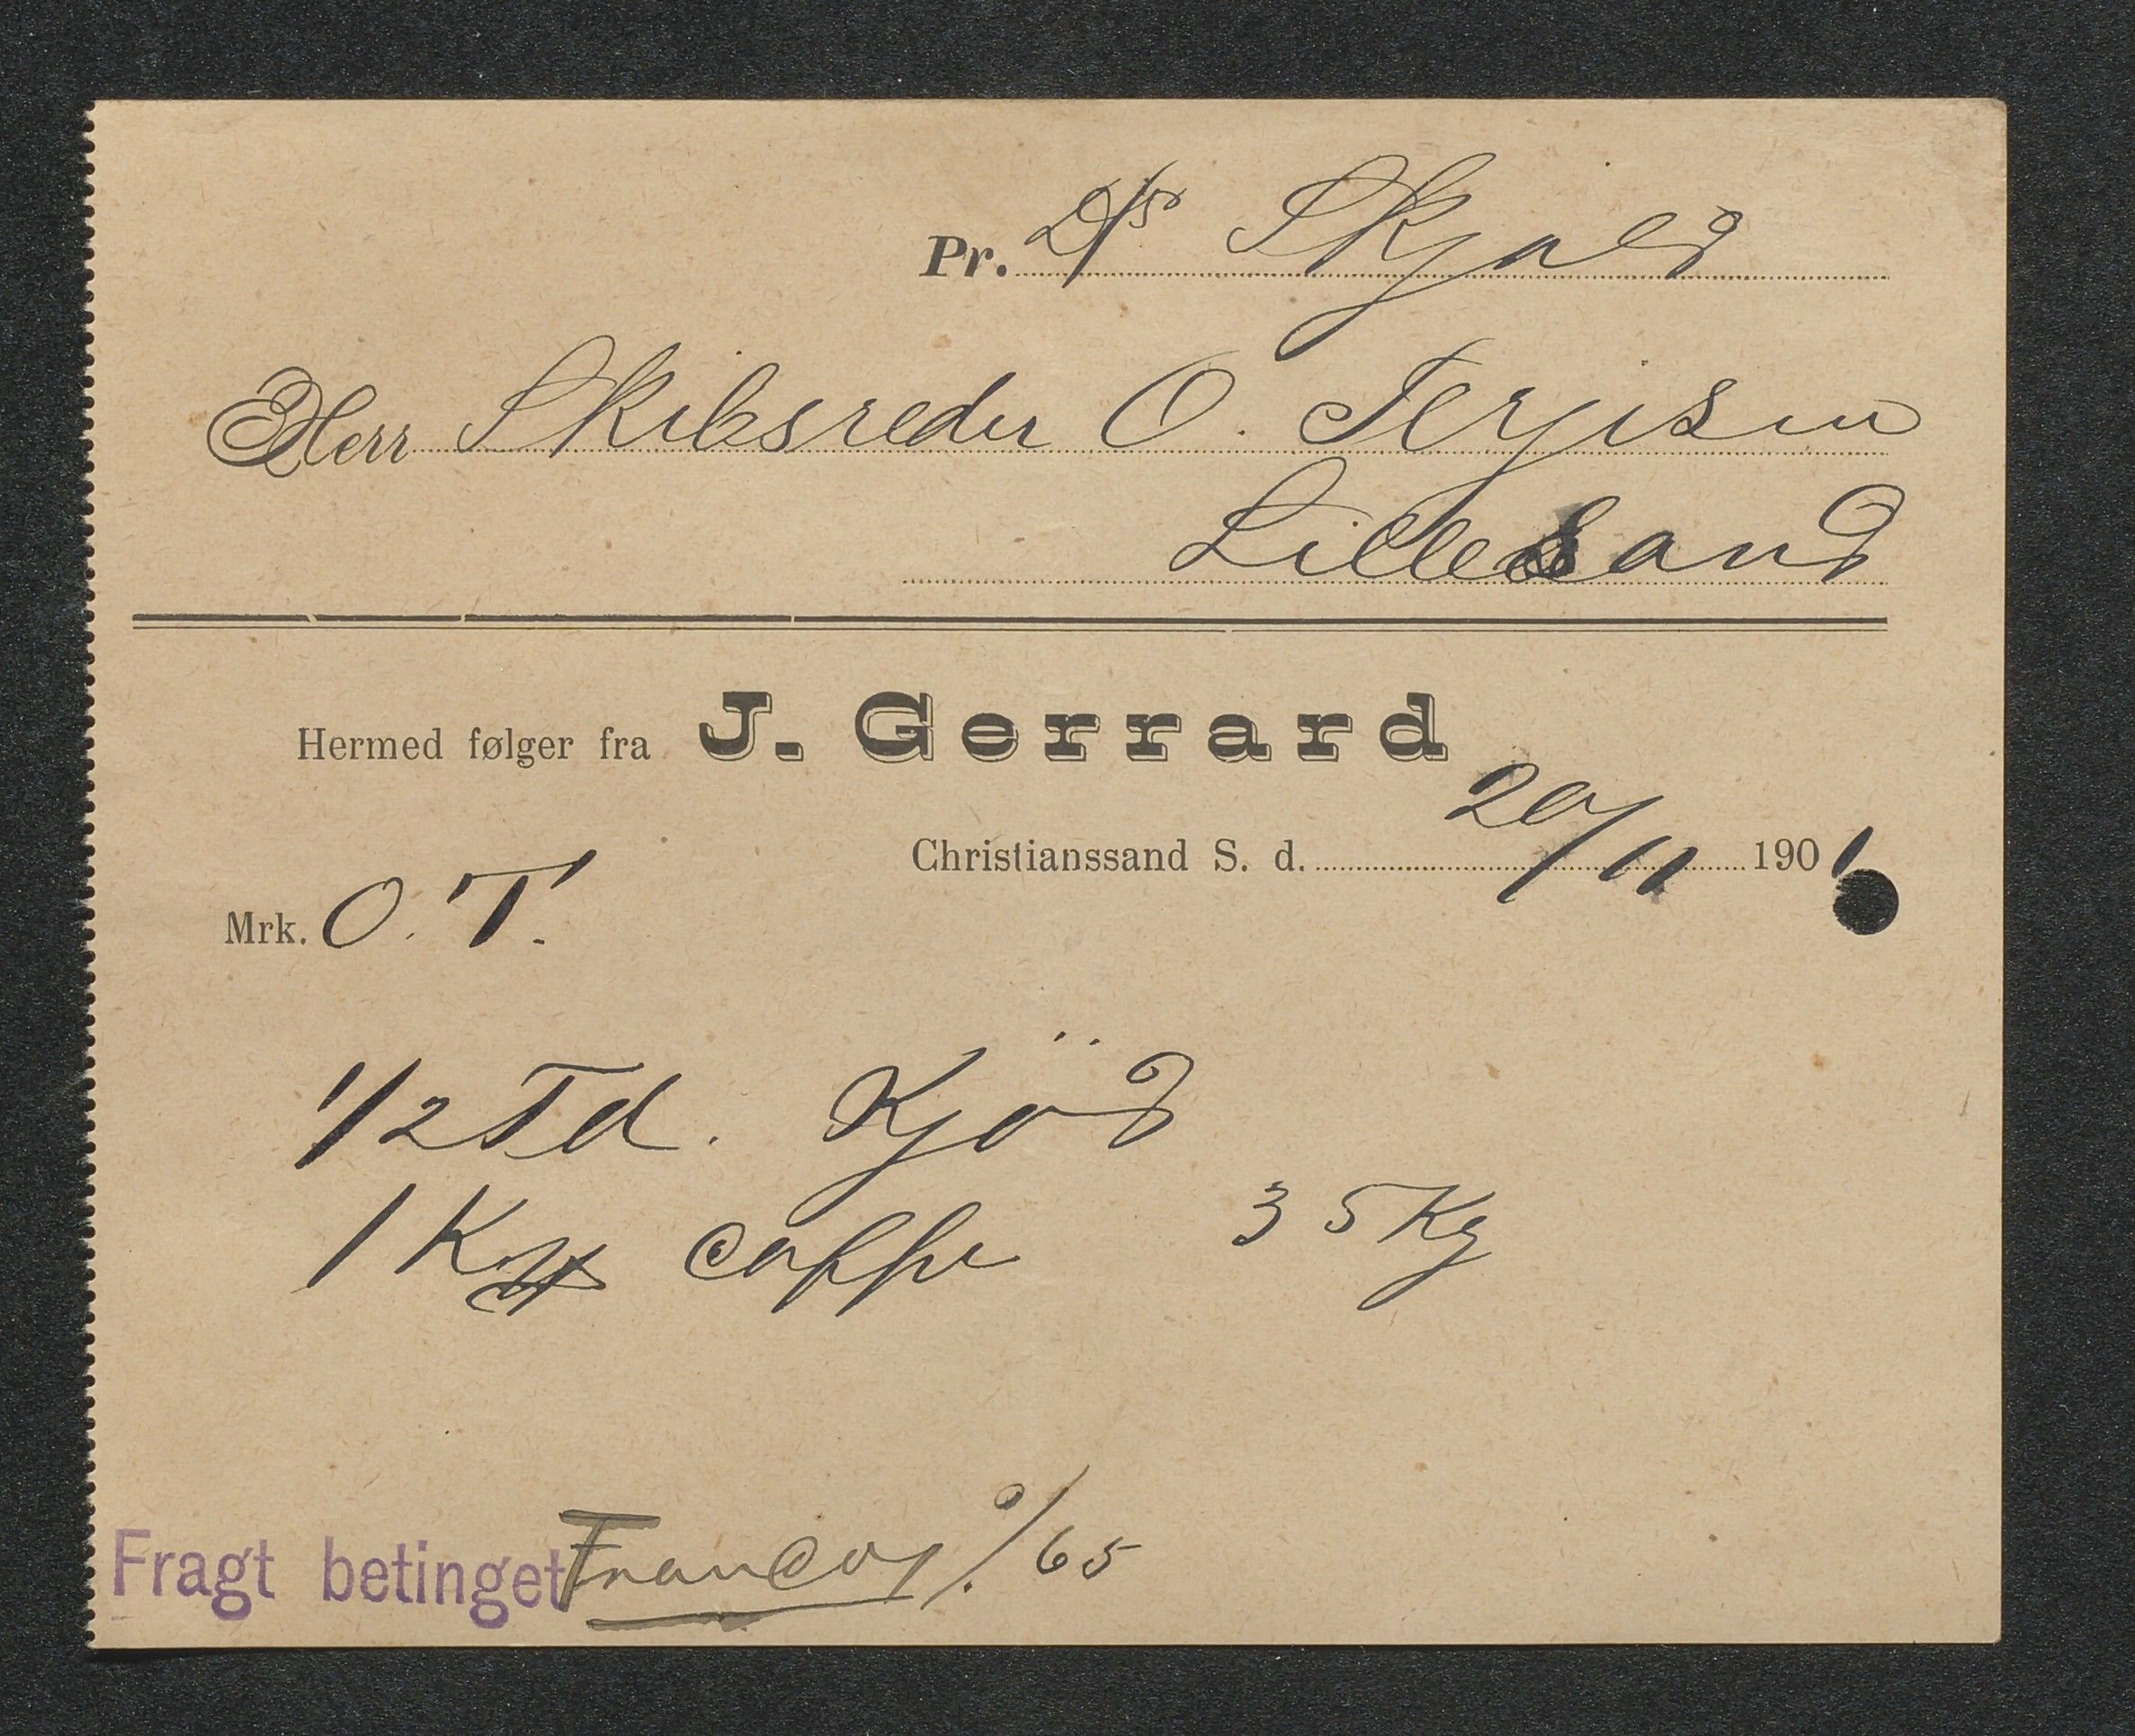 Pr. D/S Skjold
Herr Skibsreder O. Terjesen
Lillesand
Hermed følger fra J. Gerrard
Christianssand S. d. 20/11 1901
Mrk. O. T.
1/2 Td. Kjöd
1 Kss Caffe 35 Kg
Fragt betinget Franco %. 65